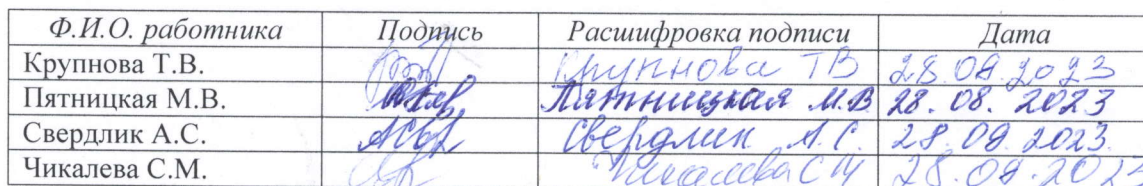 Ф.И.О. работника Подпись Расшифровка подписи Дата
Крупнова Т.В. Крупнова ТВ 28.08.2023
Пятницкая М.В. Пятницкая М.В 28.08.2023
Свердлик А.С. Свердлик А.С. 28.08.2023
Чикалева С.М. Чикалева СМ 28.08.202